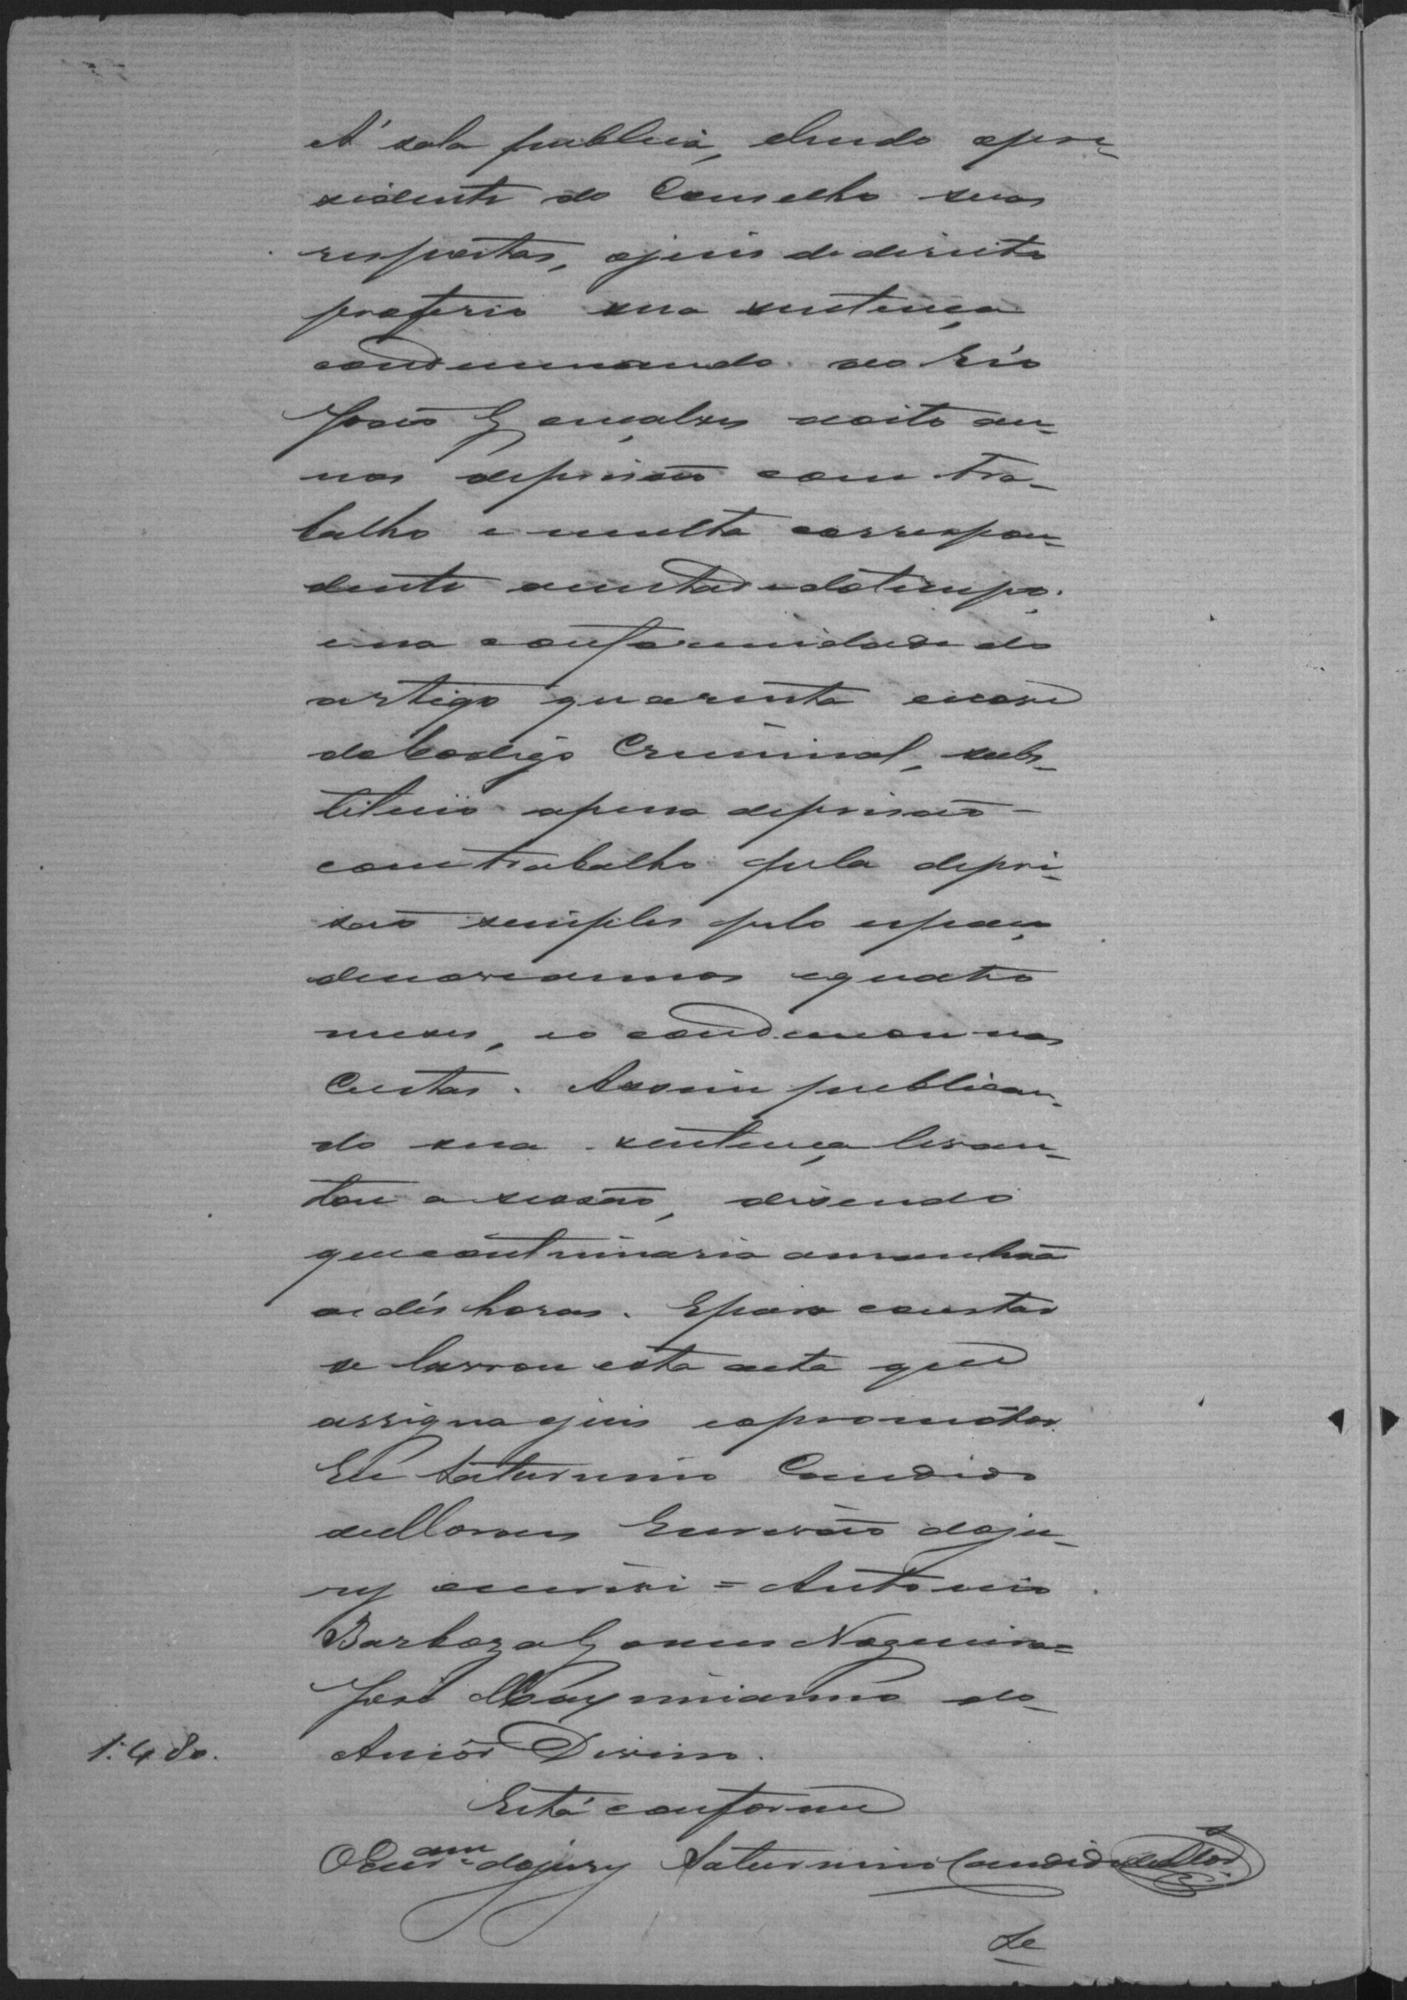 A' sala publica, lendo o pre-
sidente do Conselho suas
respostas, o juis de direito
proferio sua sentença
condemnando ao réo
João Gonçalves a oito an-
nos de prisão com tra-
balho e multa correspon-
dente a metade do tempo;
e na conformidade do
artigo quarenta e nove
do Codigo Criminal, subs-
tituio a pena de prisão
com trabalho pela de pri-
são simples pelo espaço
de nove annos e quatro
meses, e o condemnou nas
Custas. Assim publican-
do sua sentença levan-
tou a sessão, disendo
que continuaria amanhãa
as dés horas. E para constar
se lavrou esta acta que
assigna o juis e o promotor.
Eu Saturnino Candido
de Moraes Escrivão do ju-
ry escrevi = Antonio
Barboza Gomes Nogueira =
José Maymianno do
Amôr Divino.
1:480.
Está conforme
O Escrivam do jury Saturnino Candido de Mor.